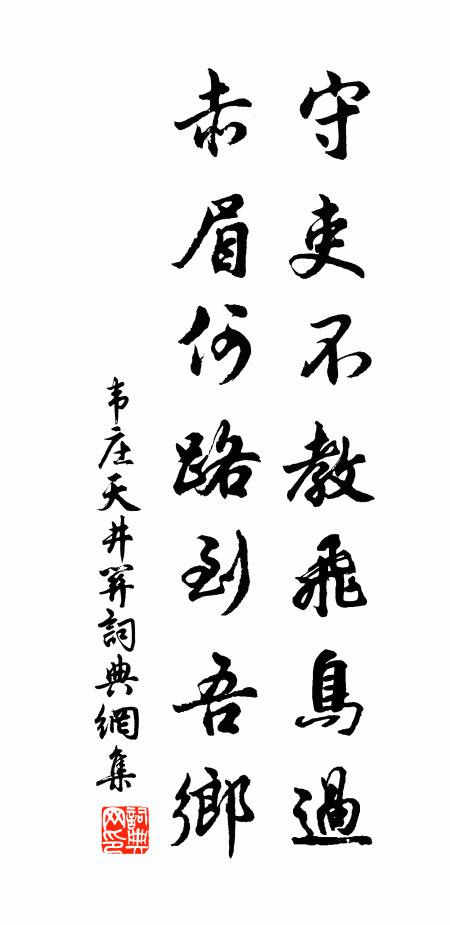 守吏不教飛鳥過
赤眉何路到吾鄉
韦庄天井關詞典網集
詞典网印